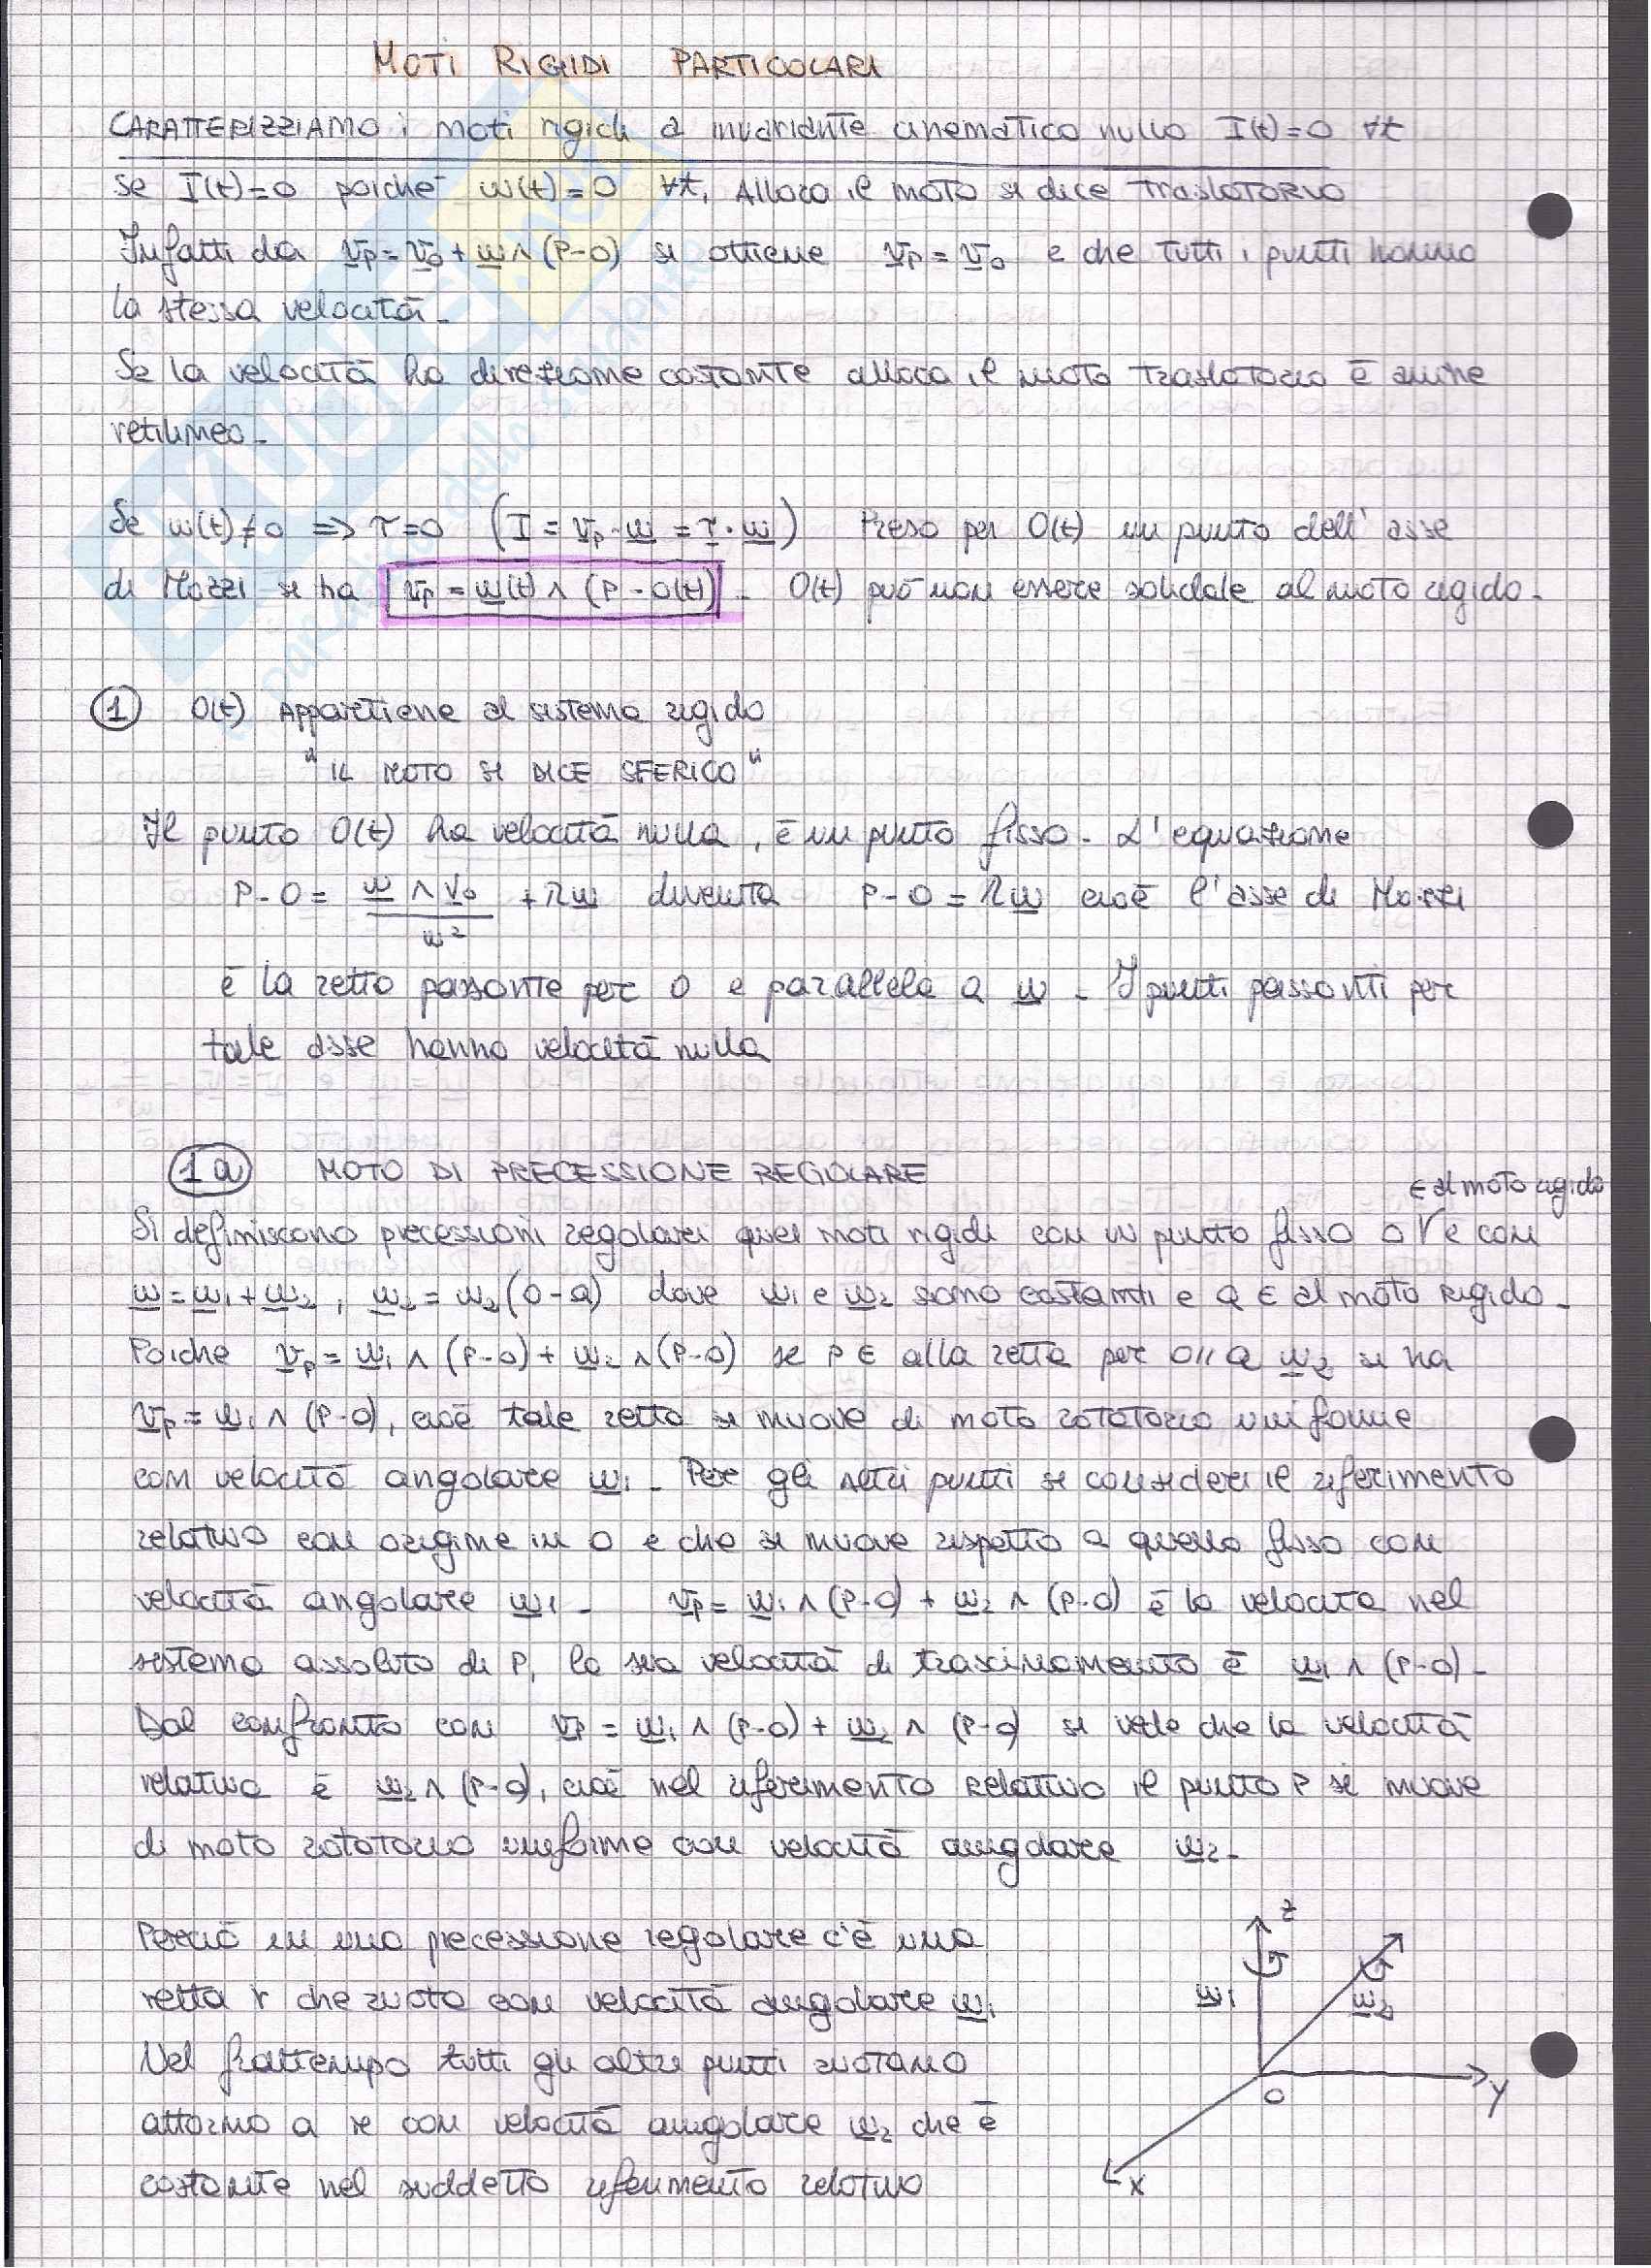 MOTI RIGIDI PARTICOLARI
CARATTERIZZIAMO i moti rigidi a invariante cinematico nullo I(t)=0 ∀t
Se I(t)=0 poiché ω(t)=0 ∀t, Allora il moto si dice TraslaTORIO
Infatti da v̲p = v̲o + ω̲ ∧ (P-O) si ottiene v̲p = v̲o e che tutti i punti hanno
la stessa velocità.
Se la velocità ha direzione costante allora il moto traslatorio è anche
retilineo.
Se ω(t)≠0 => τ=0 (I = v̲p · ω̲ = τ̲ · ω̲) Preso per O(t) un punto dell' asse
di Mozzi si ha v̲p = ω̲(t) ∧ (P - O(t)) - O(t) può non essere solidale al moto rigido.
1 O(t) Appartiene al sistema rigido
" IL MOTO SI DICE SFERICO "
Il punto O(t) ha velocità nulla, è un punto fisso. L'equazione
P-O = ω̲ ∧ v̲o / ω² + λω̲ diventa P-O = λω̲ cioè l'asse di Mozzi
è la retta passante per O e parallela a ω̲. I punti passanti per
tale asse hanno velocità nulla
1a MOTO DI PRECESSIONE REGOLARE
∈ al moto rigido
Si definiscono precessioni regolari quei moti rigidi con un punto fisso O e con
ω̲ = ω̲1 + ω̲2, ω̲2 = ω2(O-Q) dove ω1 e ω2 sono costanti e Q ∈ al moto rigido.
Poiche v̲p = ω̲1 ∧ (P-O) + ω̲2 ∧ (P-O) se P ∈ alla retta per O // a ω̲2 si ha
v̲p = ω̲1 ∧ (P-O), cioè tale retta si muove di moto rotatorio uniforme
con velocità angolare ω̲1. Per gli altri punti si consideri il riferimento
relativo con origine in O e che si muove rispetto a quello fisso con
velocità angolare ω̲1 - v̲p = ω̲1 ∧ (P-O) + ω̲2 ∧ (P-O) è la velocità nel
sistema assoluto di P, la sua velocità di trascinamento è ω̲1 ∧ (P-O).
Dal confronto con v̲p = ω̲1 ∧ (P-O) + ω̲2 ∧ (P-O) si vede che la velocità
relativa è ω̲2 ∧ (P-O), cioè nel riferimento relativo il punto P si muove
di moto rotatorio uniforme con velocità angolare ω̲2.
Perciò in una precessione regolare c'è una
retta r che ruota con velocità angolare ω̲1
Nel frattempo tutti gli altri punti ruotano
attorno a r con velocità angolare ω̲2 che è
costante nel suddetto riferimento relativo
z
ω̲1
ω̲2
O
y
x